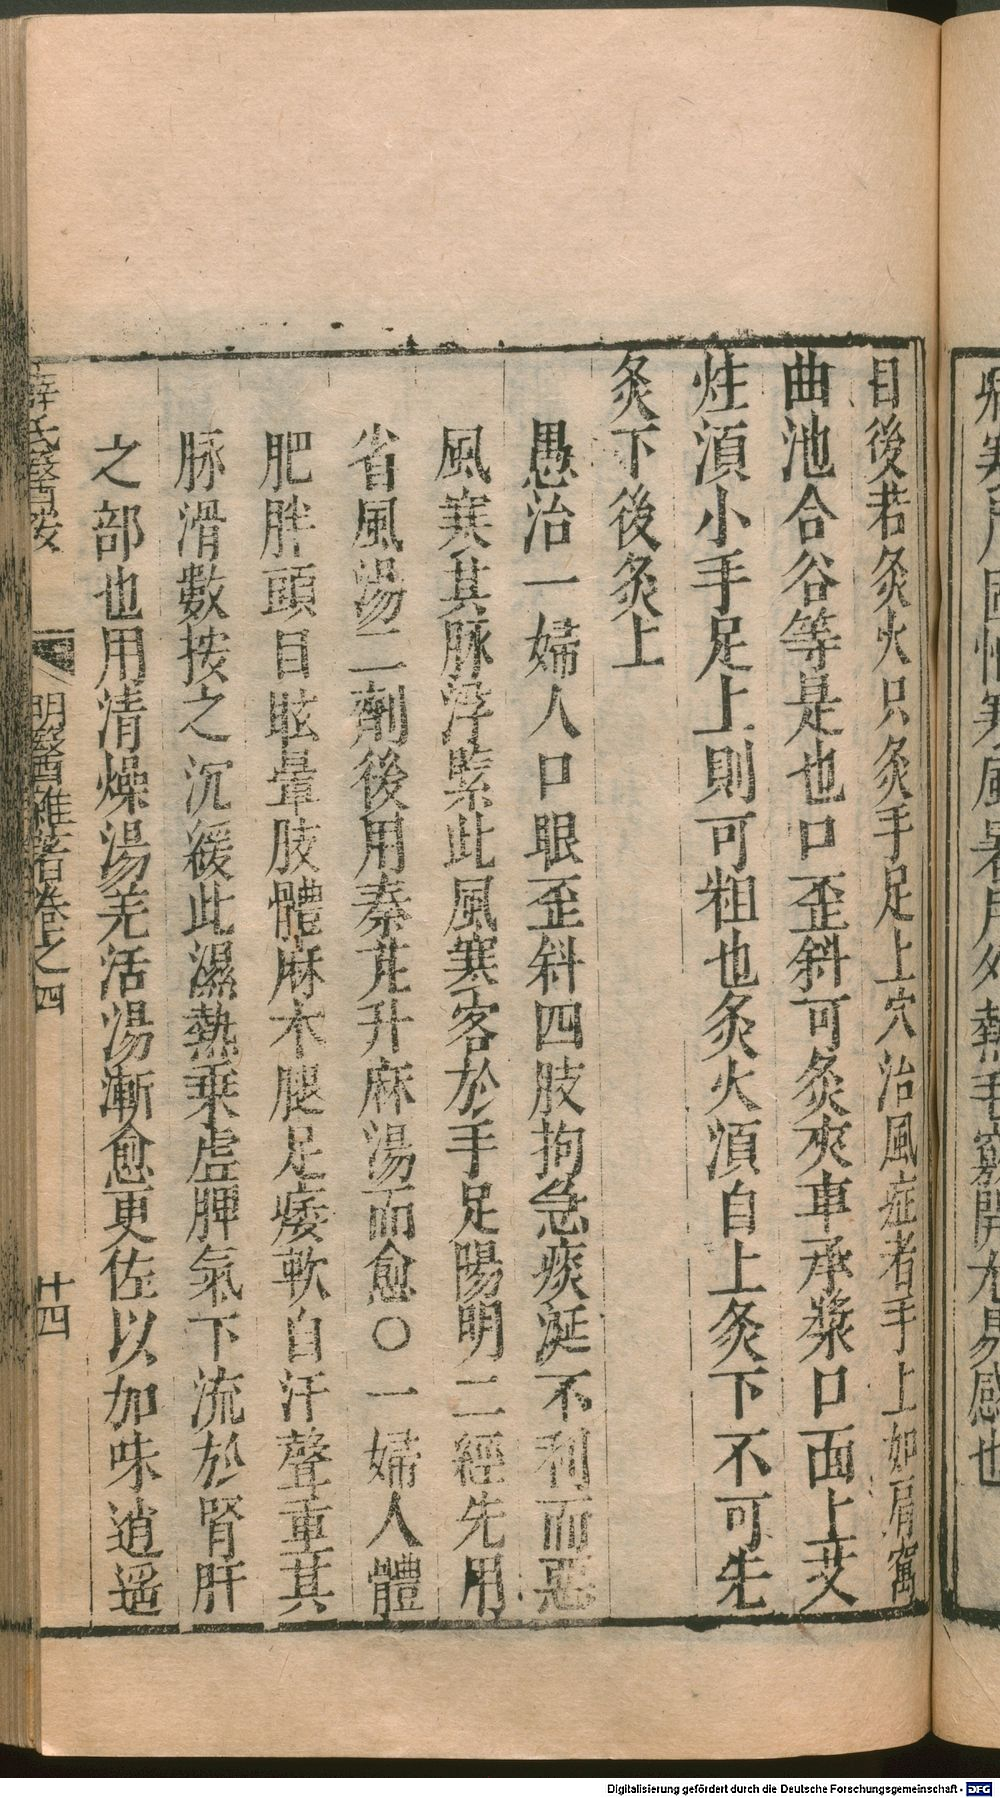 目後若灸火只灸手足上穴治風症者手上如肩窩
曲池合谷等是也口歪斜可灸夾車承漿口面上艾
炷湏小手足上則可粗也灸火湏自上灸下不可先
灸下後灸上
愚治一婦人口眼歪斜四肢拘急痰涎不利而惡
風寒其脉浮緊此風寒客於手足陽明二經先用
省風湯二劑後用秦艽升麻湯而愈○一婦人體
肥胖頭目眩暈肢體麻木腿足痿軟自汗聲重其
脉滑數按之沉緩此濕熱乗虛脾氣下流於腎肝
之部也用清燥湯羌活湯漸愈更佐以加味逍遥
薛氏醫按 明醫雜著卷之四 廿四
Digitalisierung gefördert durch die Deutsche Forschungsgemeinschaft - DFG